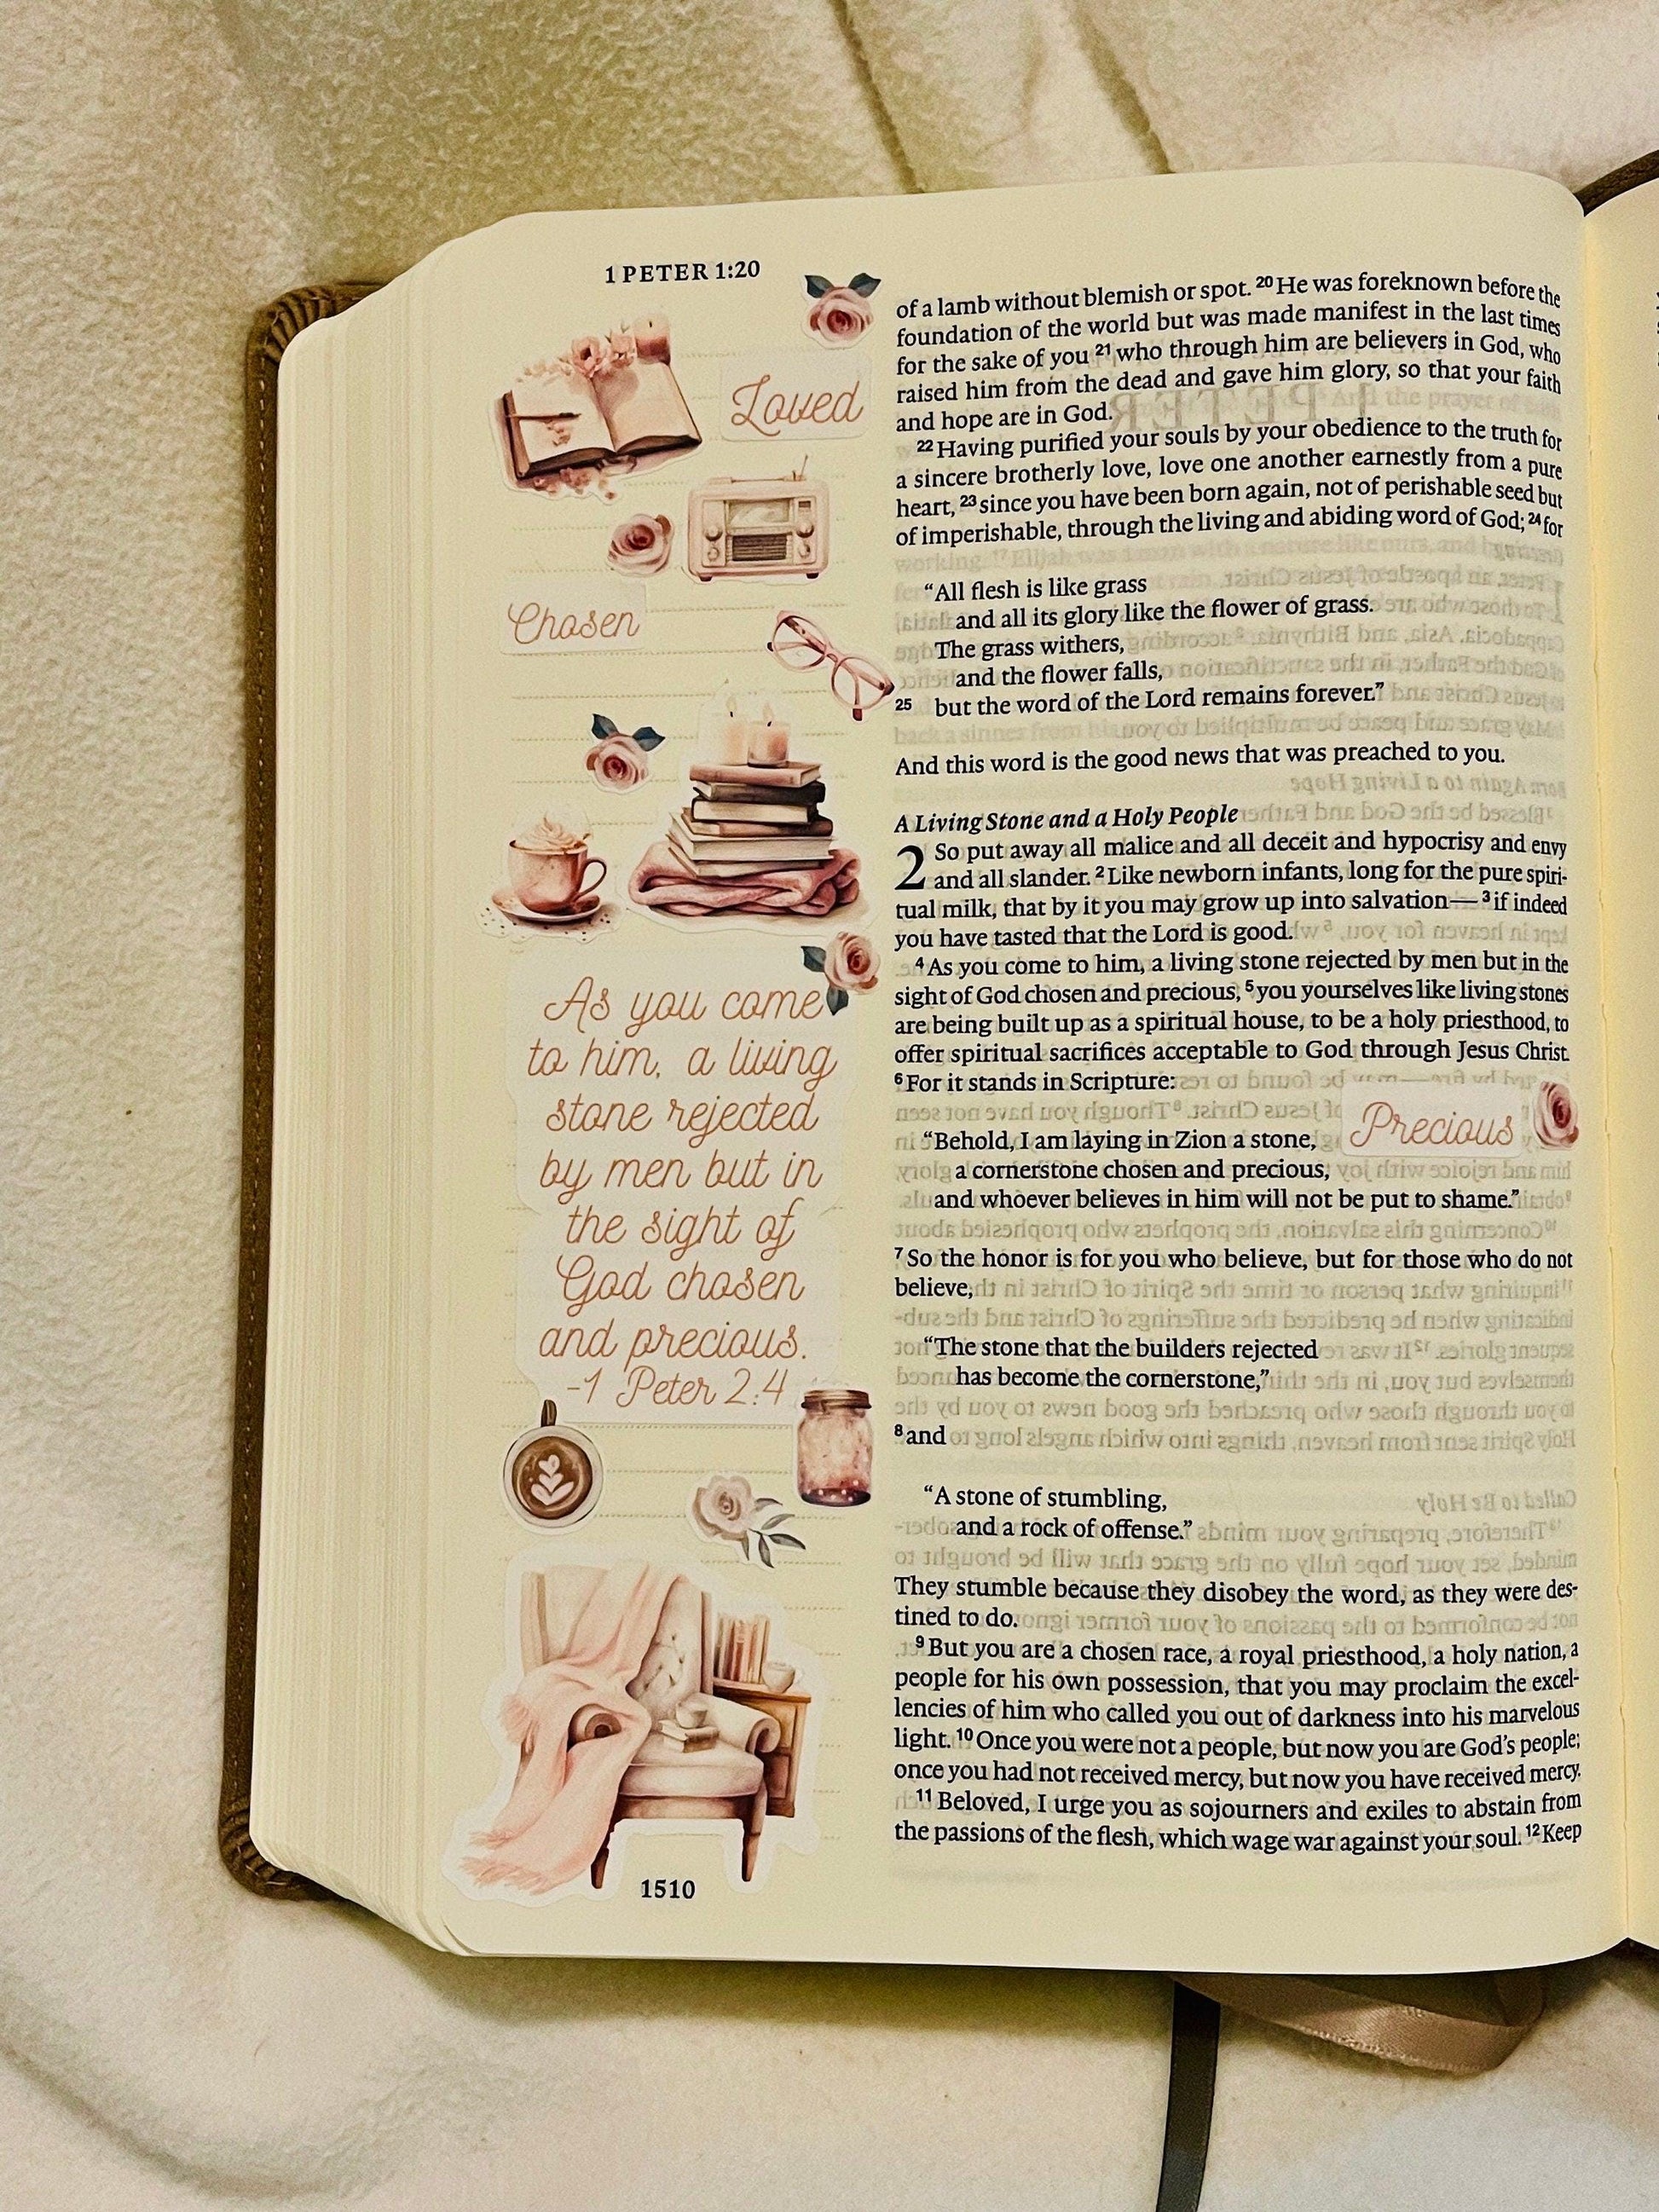 1 PETER 1:20
Loved
Chosen
As you come
to him, a living
stone rejected
by men but in
the sight of
God chosen
and precious.
-1 Peter 2:4
1510
of a lamb without blemish or spot. 20 He was foreknown before the
foundation of the world but was made manifest in the last times
for the sake of you 21 who through him are believers in God, who
raised him from the dead and gave him glory, so that your faith
and hope are in God.
22 Having purified your souls by your obedience to the truth for
a sincere brotherly love, love one another earnestly from a pure
heart, 23 since you have been born again, not of perishable seed but
of imperishable, through the living and abiding word of God; 24 for
“All flesh is like grass
and all its glory like the flower of grass.
The grass withers,
and the flower falls,
25 but the word of the Lord remains forever.”
And this word is the good news that was preached to you.
A Living Stone and a Holy People
2 So put away all malice and all deceit and hypocrisy and envy
and all slander. 2 Like newborn infants, long for the pure spiri-
tual milk, that by it you may grow up into salvation— 3 if indeed
you have tasted that the Lord is good.
4 As you come to him, a living stone rejected by men but in the
sight of God chosen and precious, 5 you yourselves like living stones
are being built up as a spiritual house, to be a holy priesthood, to
offer spiritual sacrifices acceptable to God through Jesus Christ.
6 For it stands in Scripture:
Precious
“Behold, I am laying in Zion a stone,
a cornerstone chosen and precious,
and whoever believes in him will not be put to shame.”
7 So the honor is for you who believe, but for those who do not
believe,
“The stone that the builders rejected
has become the cornerstone,”
8 and
“A stone of stumbling,
and a rock of offense.”
They stumble because they disobey the word, as they were des-
tined to do.
9 But you are a chosen race, a royal priesthood, a holy nation, a
people for his own possession, that you may proclaim the excel-
lencies of him who called you out of darkness into his marvelous
light. 10 Once you were not a people, but now you are God's people;
once you had not received mercy, but now you have received mercy.
11 Beloved, I urge you as sojourners and exiles to abstain from
the passions of the flesh, which wage war against your soul. 12 Keep